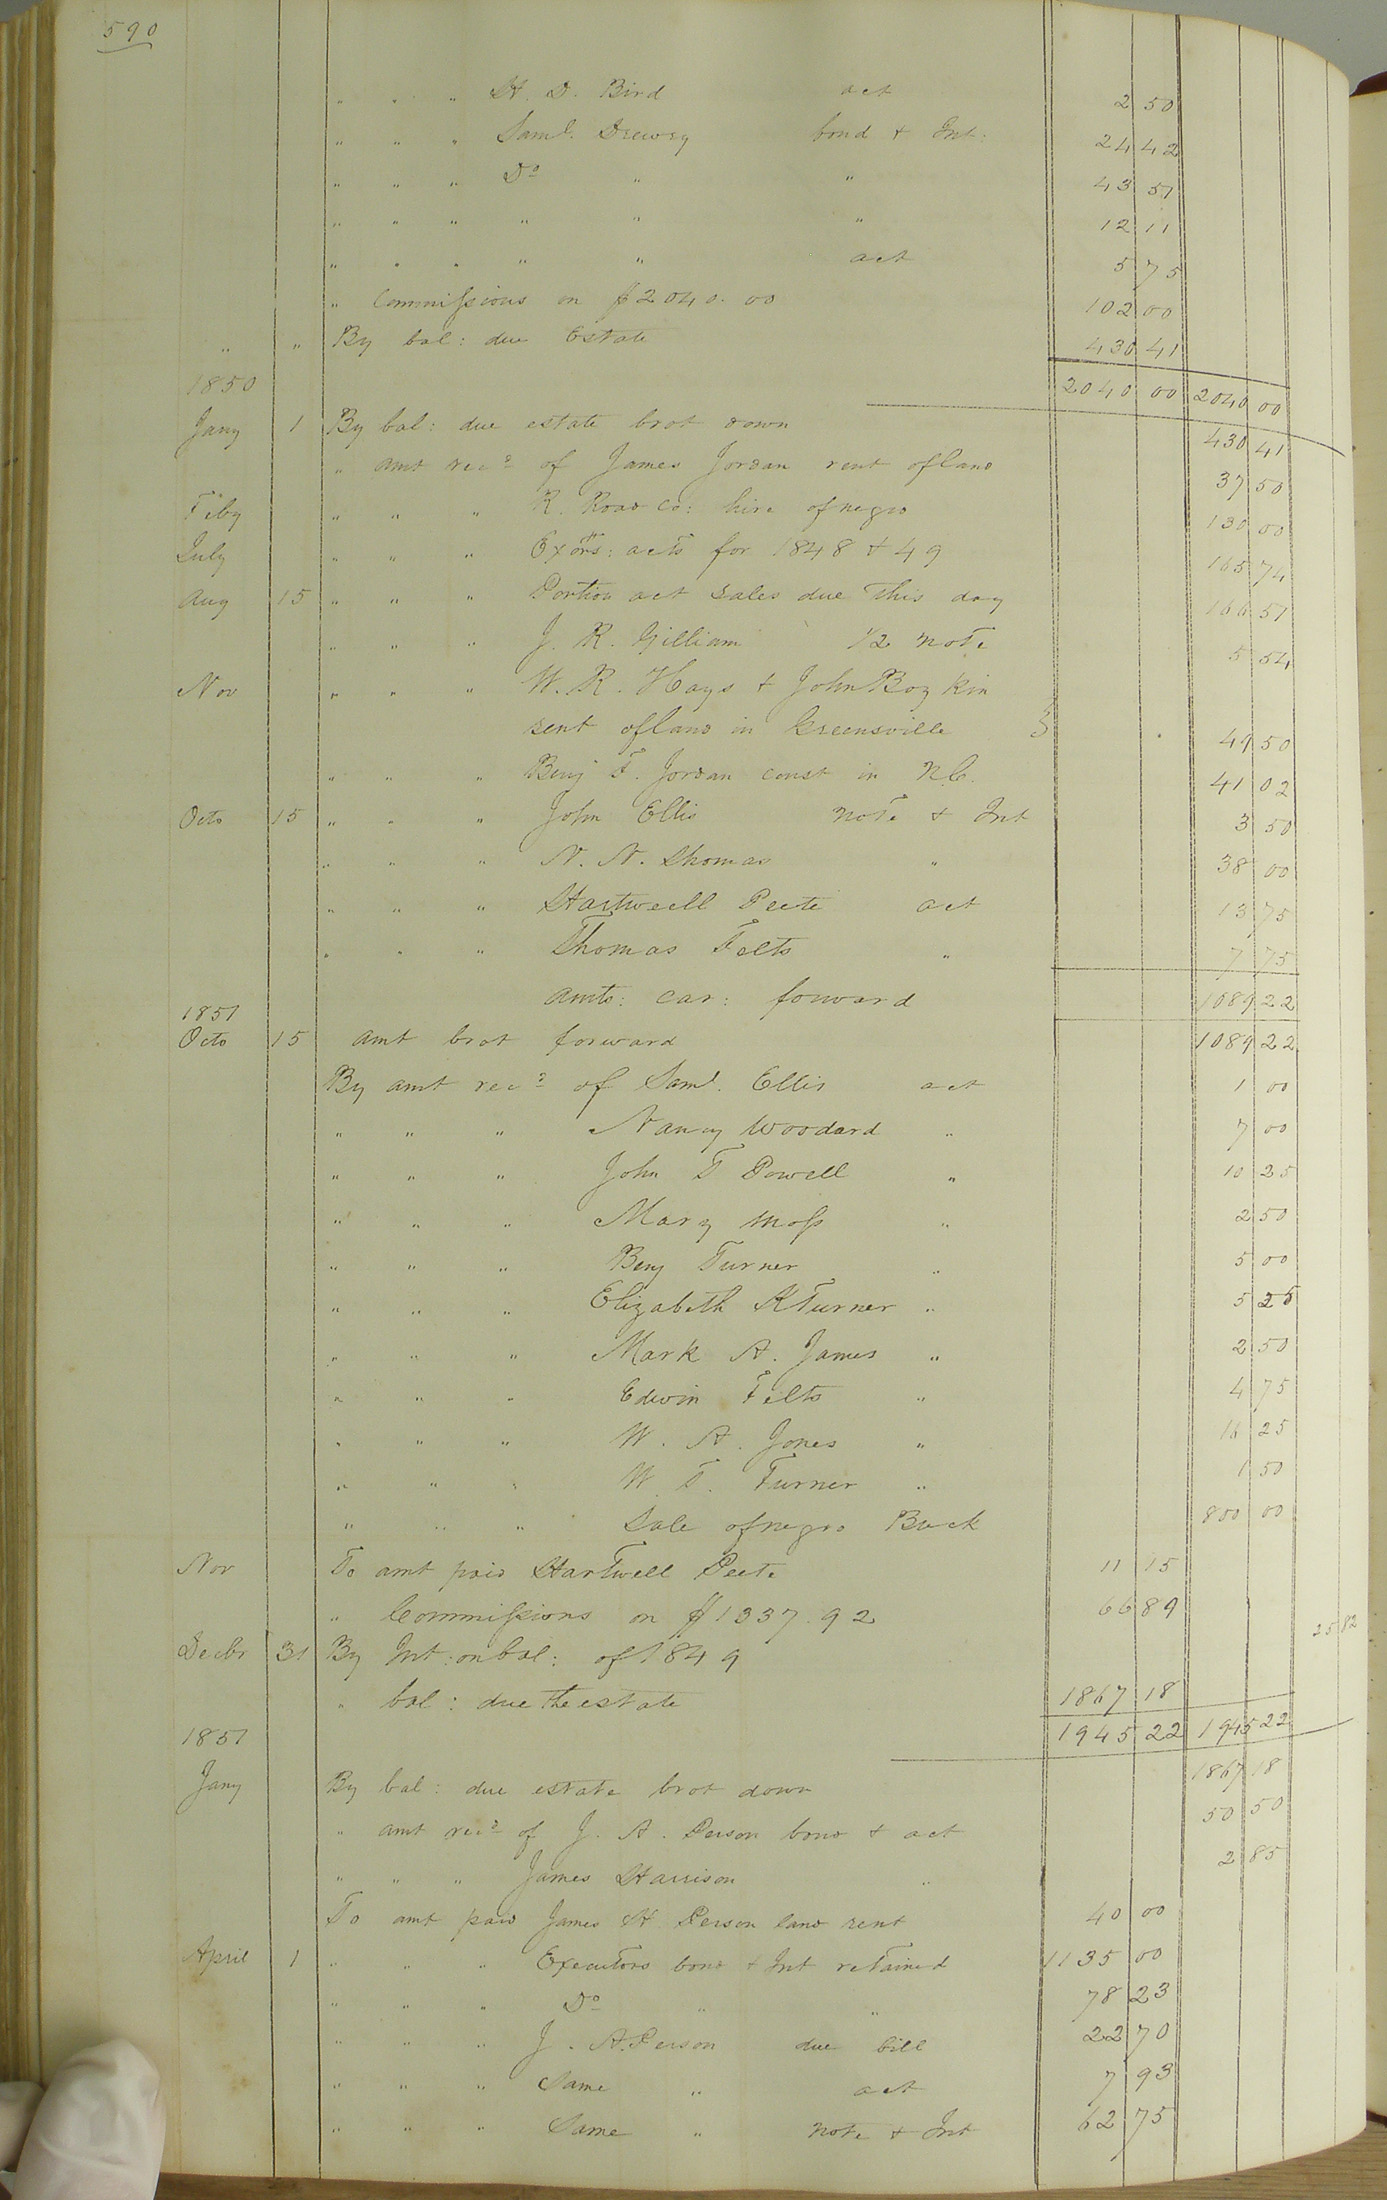 590
" " " H. D. Bird act 2 50
" " " Saml. Drewry bond & Int. 24 42
" " " Do " " 43 51
" " " " " " 12 11
" " " " " act 5 75
" Commissions on $2040.00 102 00
" " By bal: due Estate 430 41
1850 2040 00 2040 00
Jany 1 By bal: due estate brot down 430 41
" amt recd of James Jordan rent of land 37 50
Feby " " " R. Road Co: hire of negro 130 00
July " " " Exors: acts for 1848 & 49 165 74
Aug 15 " " " Portion act sales due this day 166 51
" " " J. R. Gilliam 1/2 note 5 54
Nov " " " W. R. Hays & John Boykin
rent of land in Greensville 49 50
" " " Benj F. Jordan const in N.C. 41 02
Octo 15 " " " John Ellis note & Int 3 50
" " " N. N. Thomas " 38 00
" " " Hartwell Peete act 13 75
" " " Thomas Felts " 7 75
amts: car: forward 1089 22
1851
Octo 15 amt brot forward 1089 22
By amt recd of Saml. Ellis act 1 00
" " " Nancy Woodard " 7 00
" " " John T Powell " 10 25
" " " Mary Moss " 2 50
" " " Benj Turner " 5 00
" " " Elizabeth K Turner " 5 25
" " " Mark A. James " 2 50
" " " Edwin Felts " 4 75
" " " W. A. Jones " 16 25
" " " W. T. Turner " 1 50
" " " Sale of negro Buck 800 00
Nov To amt paid Hartwell Peete 11 15
" Commissions on $1337.92 66 89
Decbr 31 By Int: on bal: of 1849 25 82
" bal: due the estate 1867 18
1851 1945 22 1945 22
Jany By bal: due estate brot down 1867 18
" amt recd of J. A. Person bond & act 50 50
" " " James Harrison " 2 85
To amt paid James H. Person land rent 40 00
April 1 " " " Executors bond & Int retained 1135 00
" " " Do " " 78 23
" " " J. A. Person due bill 22 70
" " " Same " act 7 93
" " " Same " note & Int 62 75